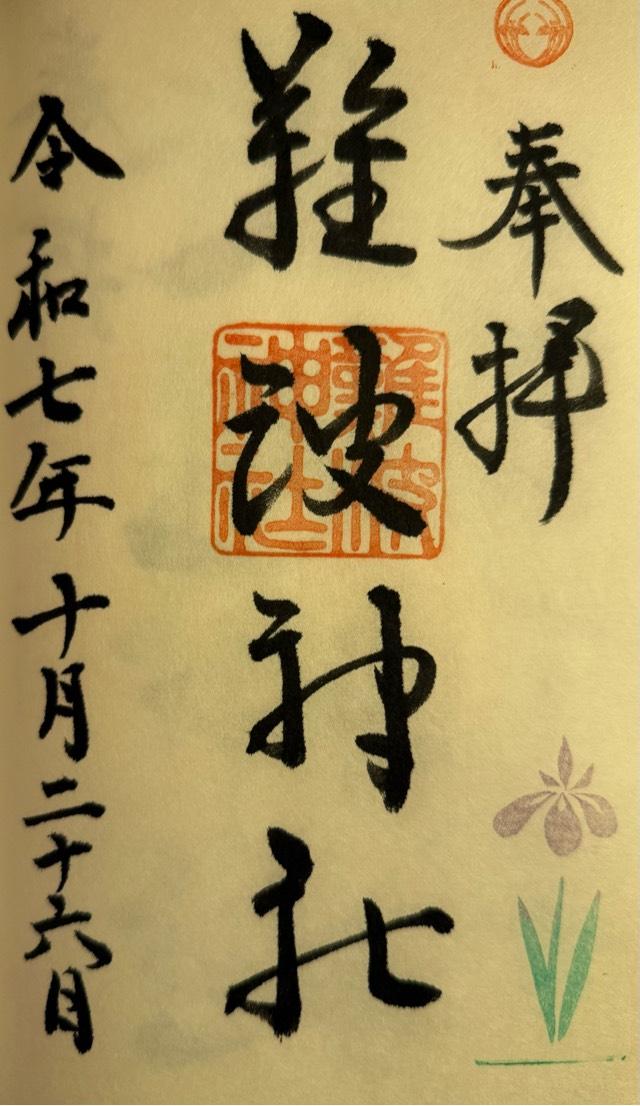 奉拝
難波神社
難波神社
令和七年十月二十六日